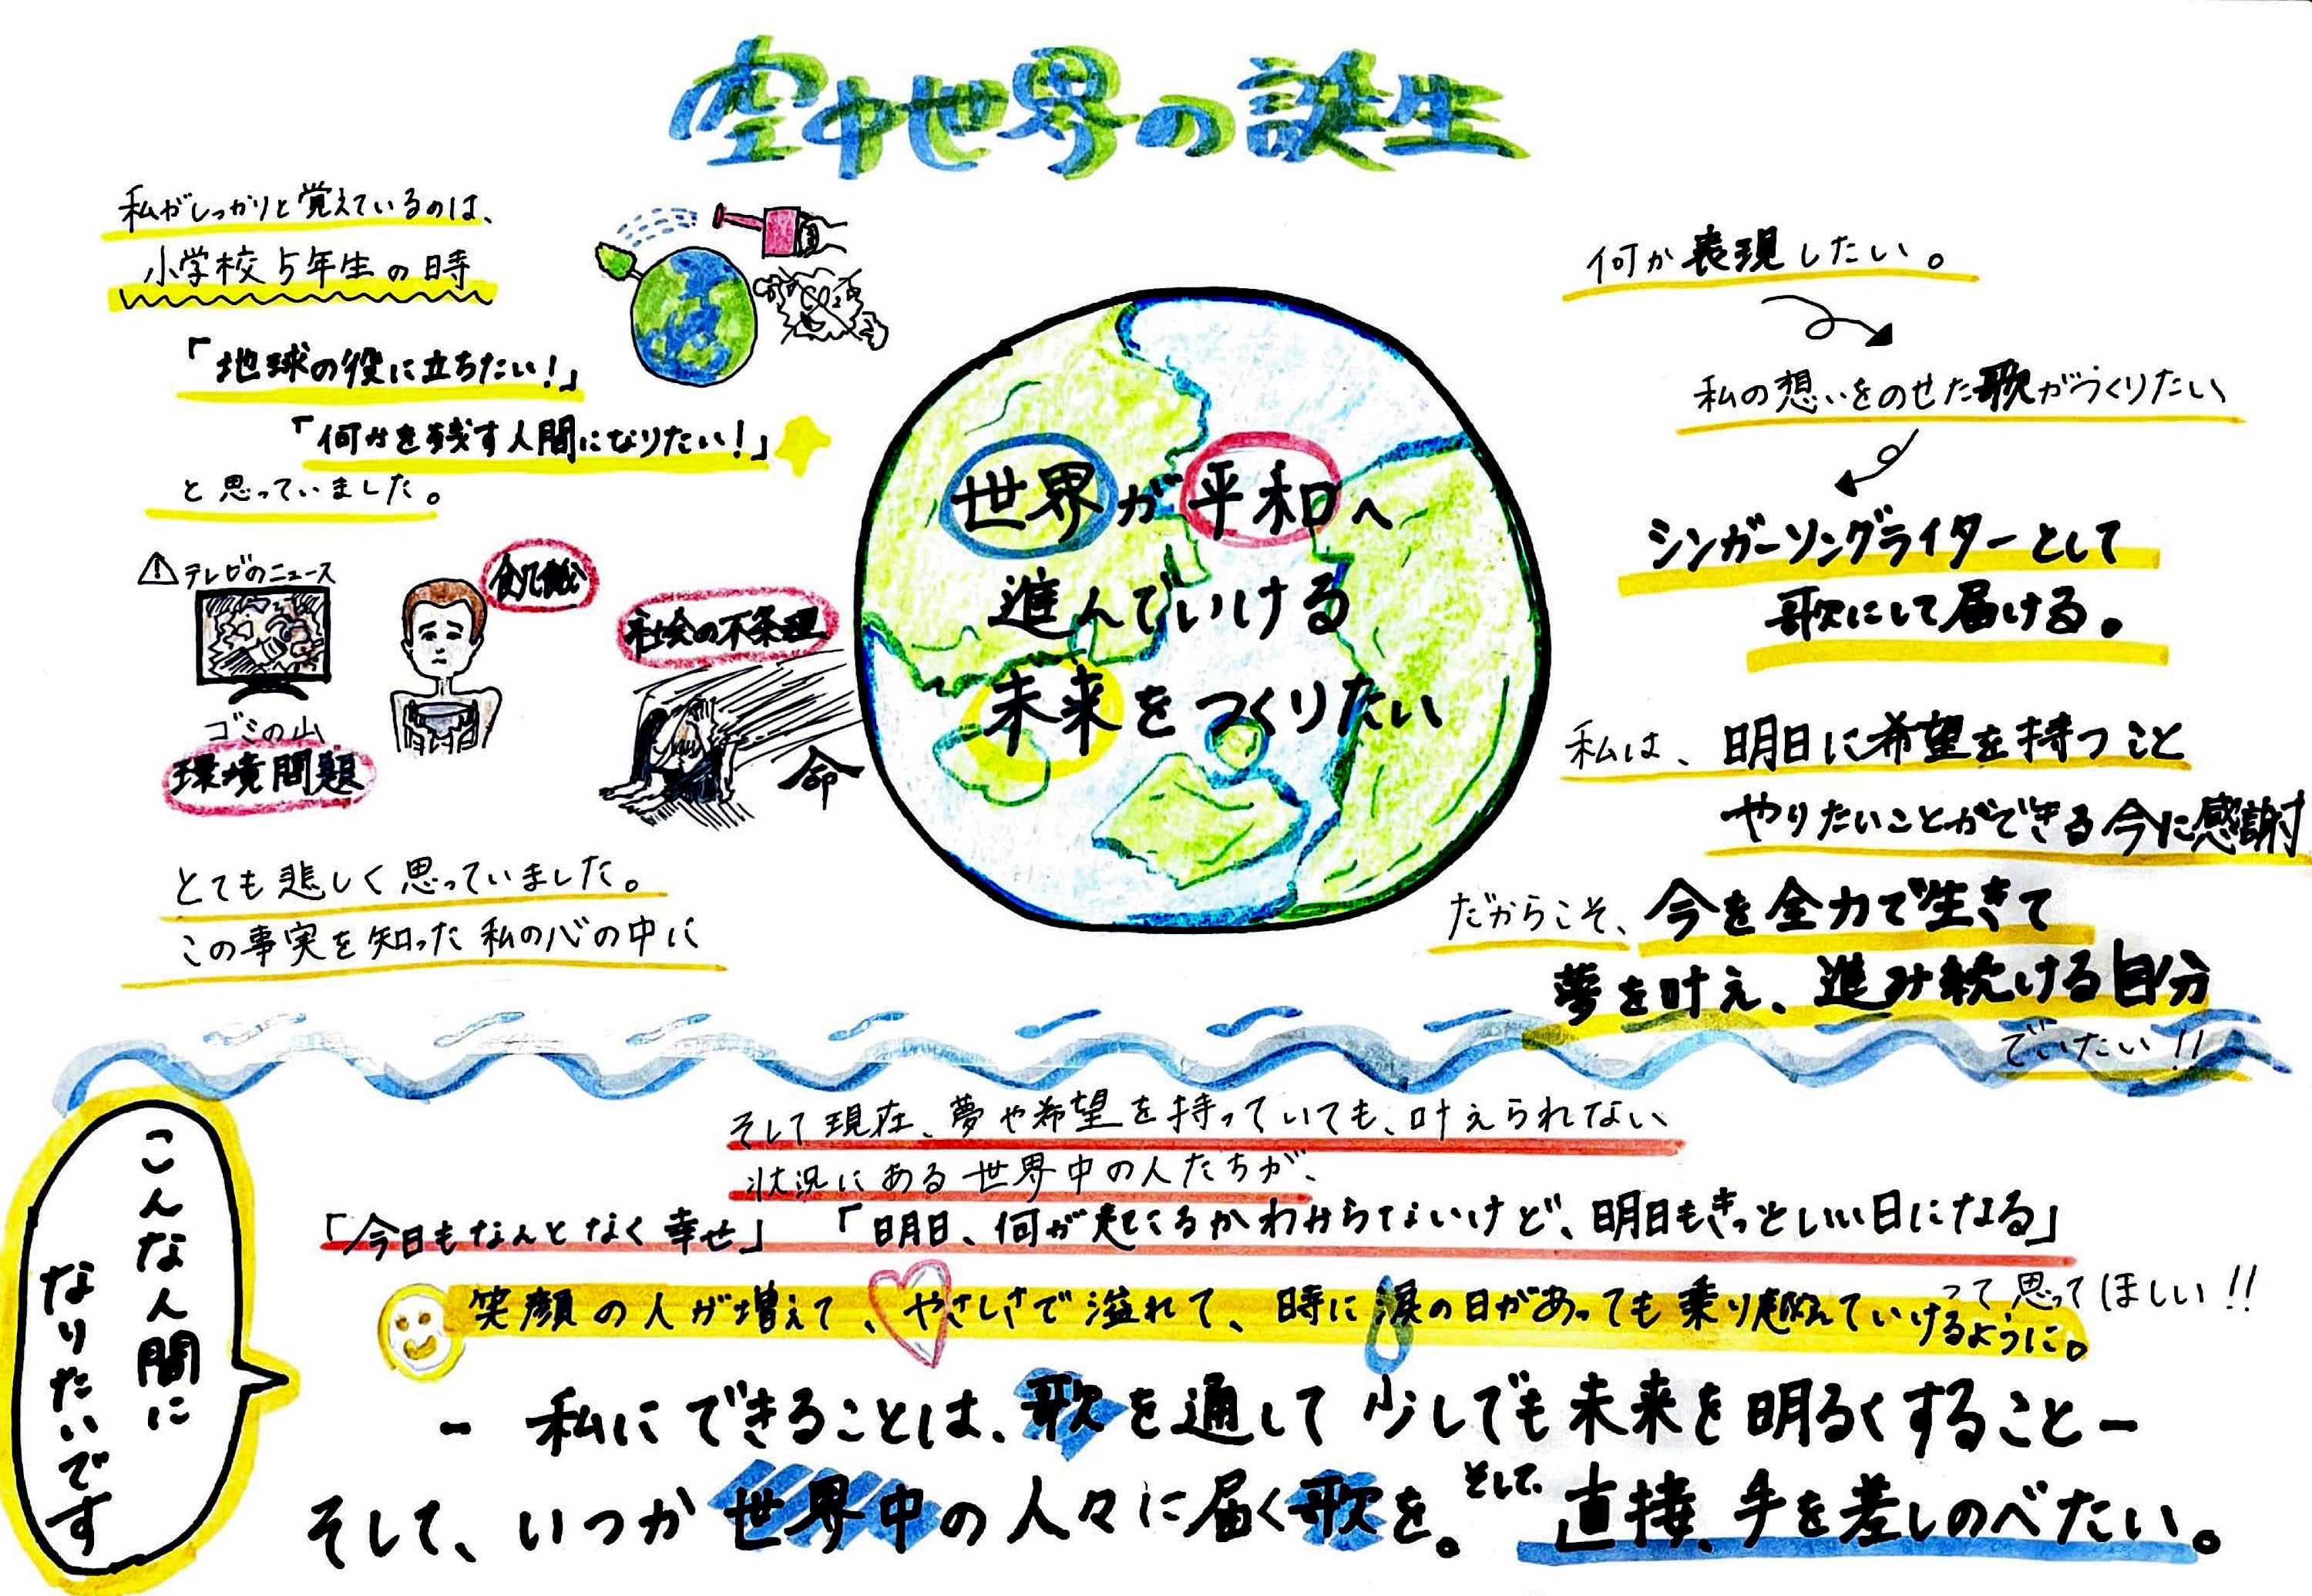 空中世界の誕生
私がしっかりと覚えているのは、
小学校5年生の時
「地球の役に立ちたい!」
「何かを残す人間になりたい!」
と思っていました。
テレビのニュース
ゴミの山
環境問題
食糧難
社会の不条理
命
とても悲しく思っていました。
この事実を知った私の心の中に
世界が平和へ
進んでいける
未来をつくりたい
何か表現したい。
私の想いをのせた歌がつくりたい
シンガーソングライターとして
歌にして届ける。
私は、明日に希望を持つこと
やりたいことができる今に感謝
だからこそ、今を全力で生きて
夢を叶え、進み続ける自分
でいたい!!
こんな人間に
なりたいです
そして現在、夢や希望を持っていても、叶えられない
状況にある世界中の人たちが、
「今日もなんとなく幸せ」「明日、何が起こるかわからないけど、明日もきっといい日になる」
って思ってほしい!!
笑顔の人が増えて、やさしさで溢れて、時に涙の日があっても乗り越えていけるように。
- 私にできることは、歌を通して少しでも未来を明るくすること -
そして、いつか世界中の人々に届く歌を。そして、直接、手を差しのべたい。